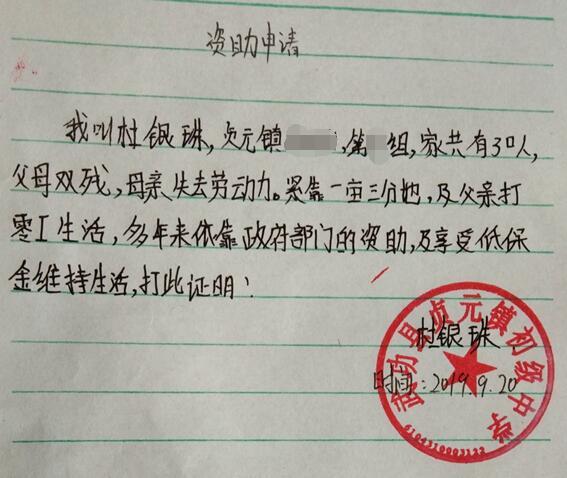 资助申请
我叫杜银珠,贞元镇,第组,家共有3口人,
父母双残,母亲失去劳动力。紧靠一亩三分地,及父亲打
零工生活,多年来依靠政府部门的资助,及享受低保
金维持生活,打此证明!
杜银珠
时间:2019.9.20
武功县贞元镇初级中学
6104310003122